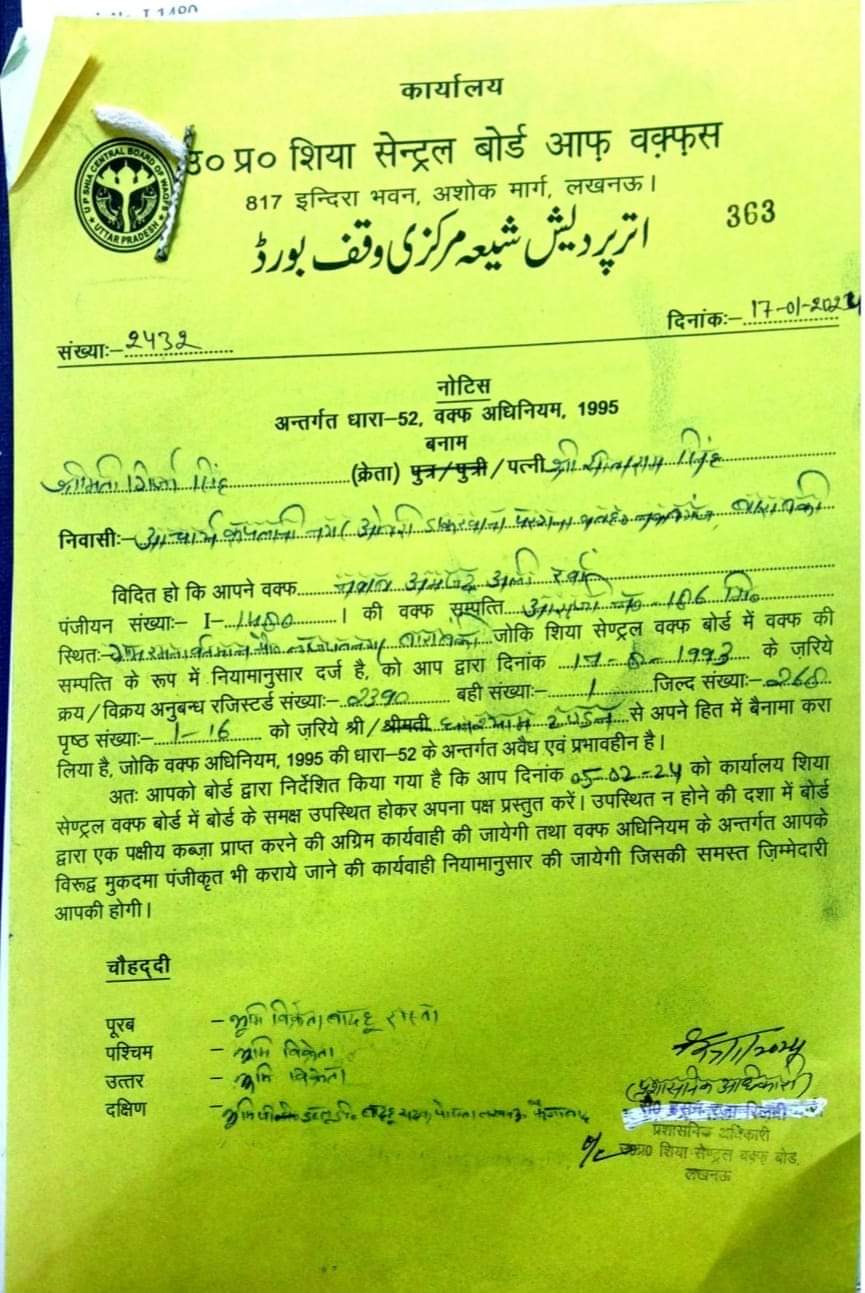 I-1480
कार्यालय
उ० प्र० शिया सेन्ट्रल बोर्ड आफ़ वक़्फ़स
817 इन्दिरा भवन, अशोक मार्ग, लखनऊ।
U P SHIA CENTRAL BOARD OF WAQF
UTTAR PRADESH
363
اتر پردیش شیعہ مرکزی وقف بورڈ
दिनांकः– 17-01-2024
संख्याः– 2432
नोटिस
अन्तर्गत धारा–52, वक्फ अधिनियम, 1995
बनाम
श्रीमती सिंह (क्रेता) पुत्र/पुत्री/पत्नी श्री सिंह
निवासीः– नगर
विदित हो कि आपने वक्फ नवाब अमजद अली खाँ
पंजीयन संख्याः– I–1480 । की वक्फ सम्पत्ति 186 मि०
स्थितः– जोकि शिया सेण्ट्रल वक्फ बोर्ड में वक्फ की
सम्पत्ति के रूप में नियामानुसार दर्ज है, को आप द्वारा दिनांक 1993 के ज़रिये
क्रय/विक्रय अनुबन्ध रजिस्टर्ड संख्याः– 2390 बही संख्याः– 1 जिल्द संख्याः– 268
पृष्ठ संख्याः– 1-16 को ज़रिये श्री/श्रीमती टण्डन से अपने हित में बैनामा करा
लिया है, जोकि वक्फ अधिनियम, 1995 की धारा–52 के अन्तर्गत अवैध एवं प्रभावहीन है।
अतः आपको बोर्ड द्वारा निर्देशित किया गया है कि आप दिनांक 05-02-24 को कार्यालय शिया
सेण्ट्रल वक्फ बोर्ड में बोर्ड के समक्ष उपस्थित होकर अपना पक्ष प्रस्तुत करें। उपस्थित न होने की दशा में बोर्ड
द्वारा एक पक्षीय कब्ज़ा प्राप्त करने की अग्रिम कार्यवाही की जायेगी तथा वक्फ अधिनियम के अन्तर्गत आपके
विरूद्व मुकदमा पंजीकृत भी कराये जाने की कार्यवाही नियामानुसार की जायेगी जिसकी समस्त ज़िम्मेदारी
आपकी होगी।
चौहद्दी
पूरब – भूमि विक्रेता बादहू रास्ता
पश्चिम – भूमि विक्रेता
उत्तर – भूमि विक्रेता
दक्षिण – भूमि
(प्रशासनिक अधिकारी)
प्रशासनिक अधिकारी
उ०प्र० शिया सेण्ट्रल वक्फ बोर्ड,
लखनऊ